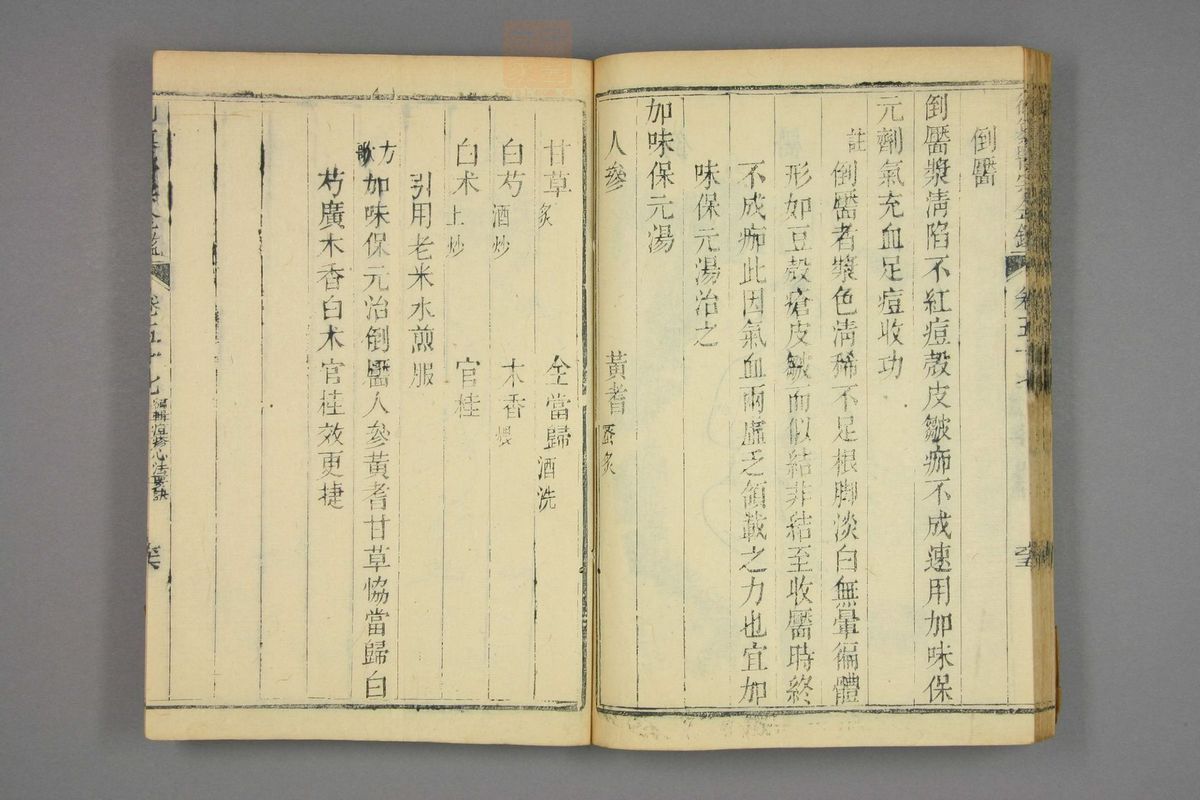 倒靨
倒靨漿清陷不紅痘殼皮皺痂不成速用加味保
元劑氣充血足痘收功
註
倒靨者漿色清稀不足根脚淡白無暈徧體
形如豆殼瘡皮皺而似結非結至收靨時終
不成痂此因氣血兩虛乏領載之力也宜加
味保元湯治之
加味保元湯
人參 黃耆 蜜炙
甘草 炙 全當歸 酒洗
白芍 酒炒 木香 煨
白术 土炒 官桂
引用老米水煎服
方歌
加味保元治倒靨人參黃耆甘草恊當歸白
芍廣木香白术官桂效更捷
卷五十七 編輯痘疹心法要訣